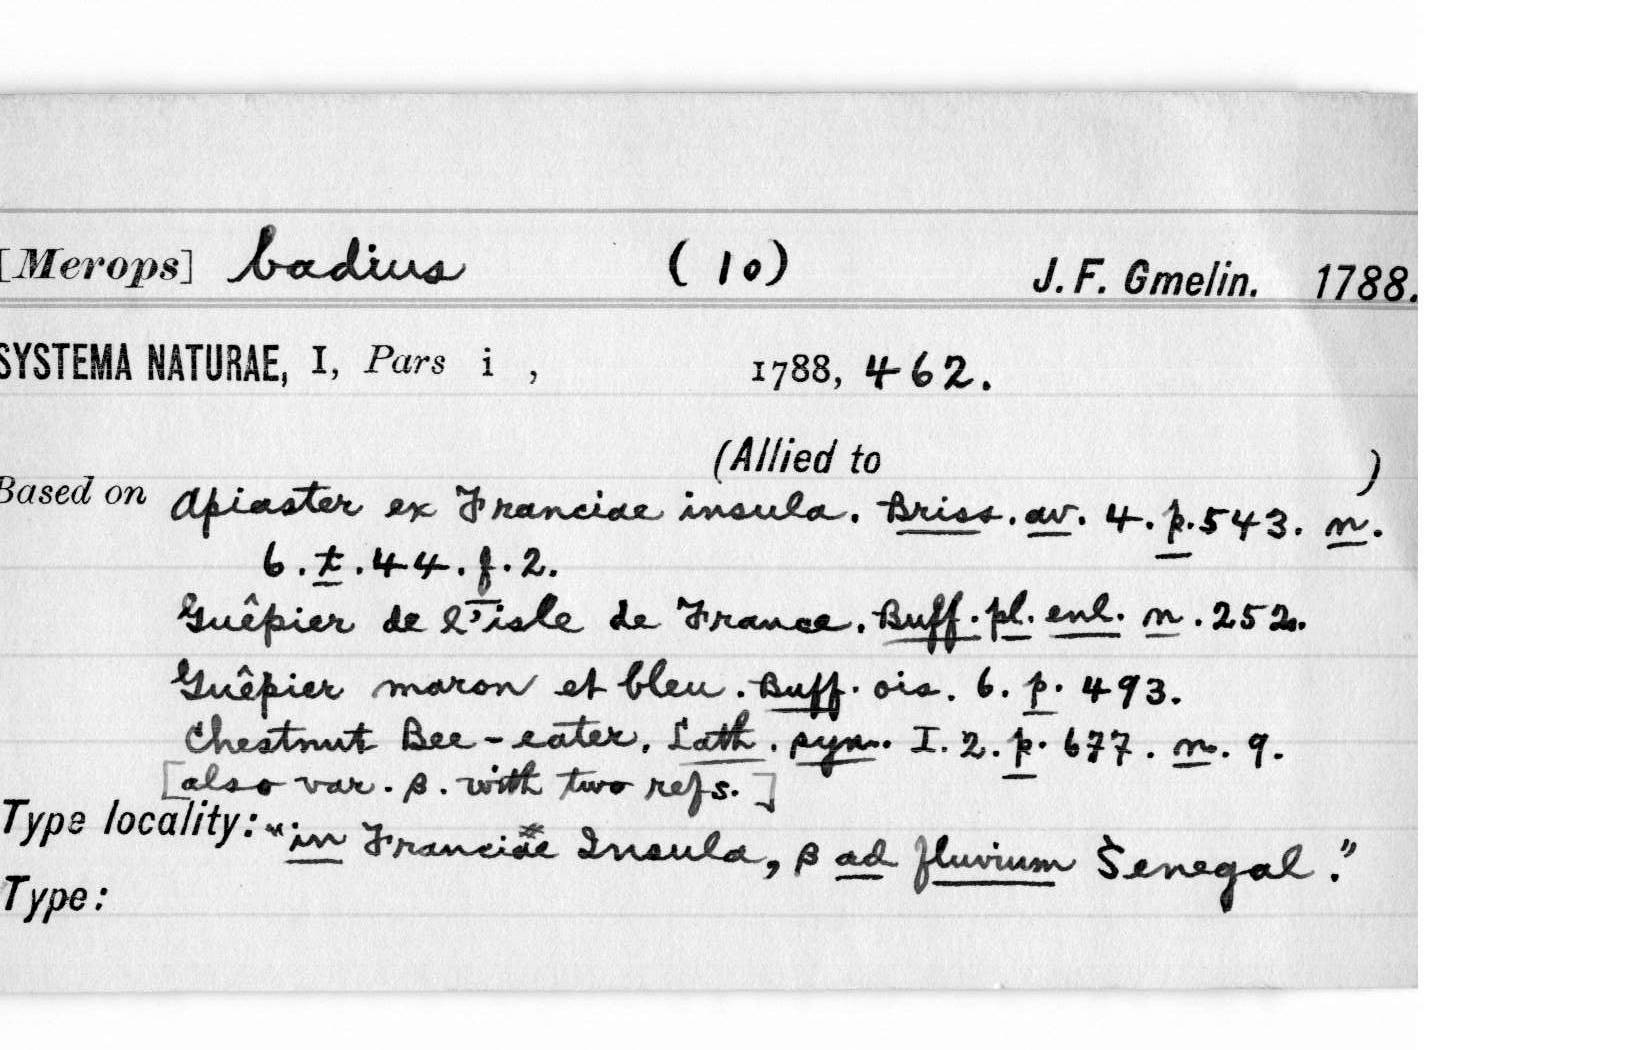 [Merops] badius (10) J. F. Gmelin. 1788.
SYSTEMA NATURAE, I, Pars i , 1788, 462.
(Allied to )
Based on Apiaster ex Franciae insula. Briss. av. 4. p. 543. n.
6. t. 44. f. 2.
Guêpier de l'isle de France. Buff. pl. enl. n. 252.
Guêpier maron et bleu. Buff. ois. 6. p. 493.
Chestnut Bee-eater. Lath. syn. I. 2. p. 677. n. 9.
[also var. β. with two refs.]
Type locality: "in Franciae Insula, β ad fluvium Senegal."
Type: